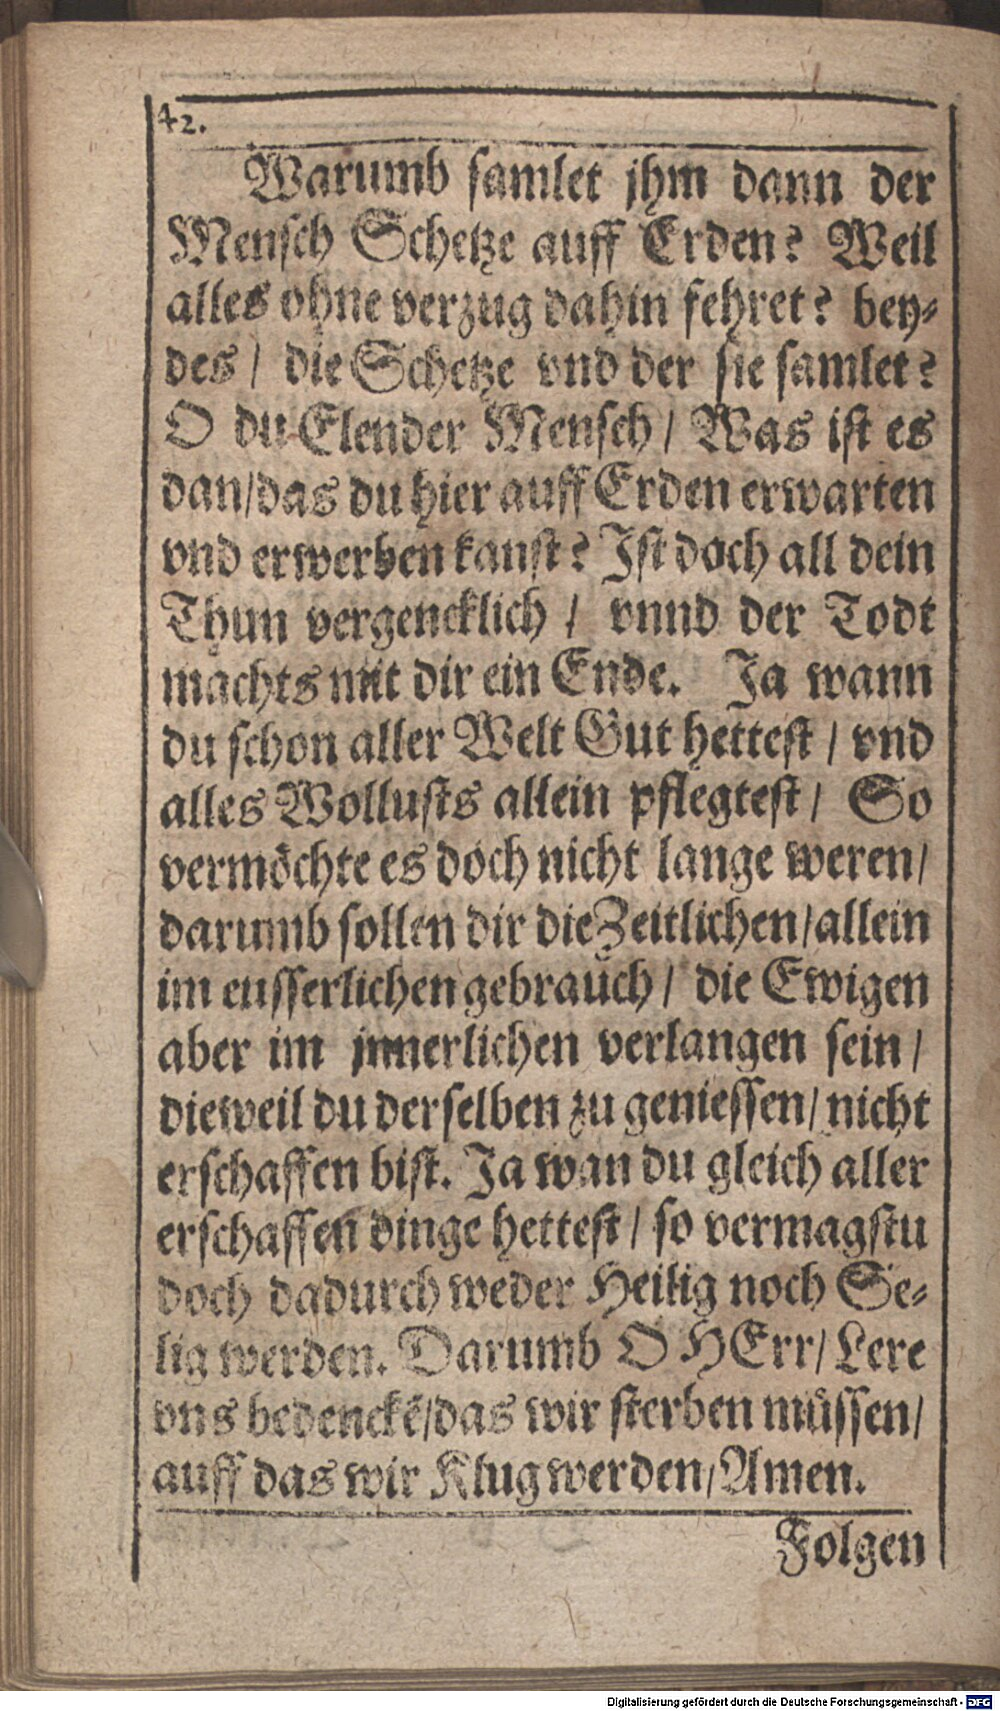 42.
Warumb samlet jhm dann der
Mensch Schetze auff Erden? Weil
alles ohne verzug dahin fehret? bey⸗
des / die Schetze vnd der sie samlet?
O du Elender Mensch / Was ist es
dan/das du hier auff Erden erwarten
vnd erwerben kanst? Ist doch all dein
Thun vergencklich / vnnd der Todt
machts mit dir ein Ende. Ja wann
du schon aller Welt Gut hettest / vnd
alles Wollusts allein pflegtest / So
vermöchte es doch nicht lange weren/
darumb sollen dir die Zeitlichen/allein
im eusserlichen gebrauch / die Ewigen
aber im jnnerlichen verlangen sein /
dieweil du derselben zu geniessen/ nicht
erschaffen bist. Ja wan du gleich aller
erschaffen dinge hettest / so vermagstu
doch dadurch weder Heilig noch Se⸗
lig werden. Darumb O HErr/ Lere
vns bedenckē/das wir sterben müssen/
auff das wir Klug werden/Amen.
Folgen
Digitalisierung gefördert durch die Deutsche Forschungsgemeinschaft - DFG